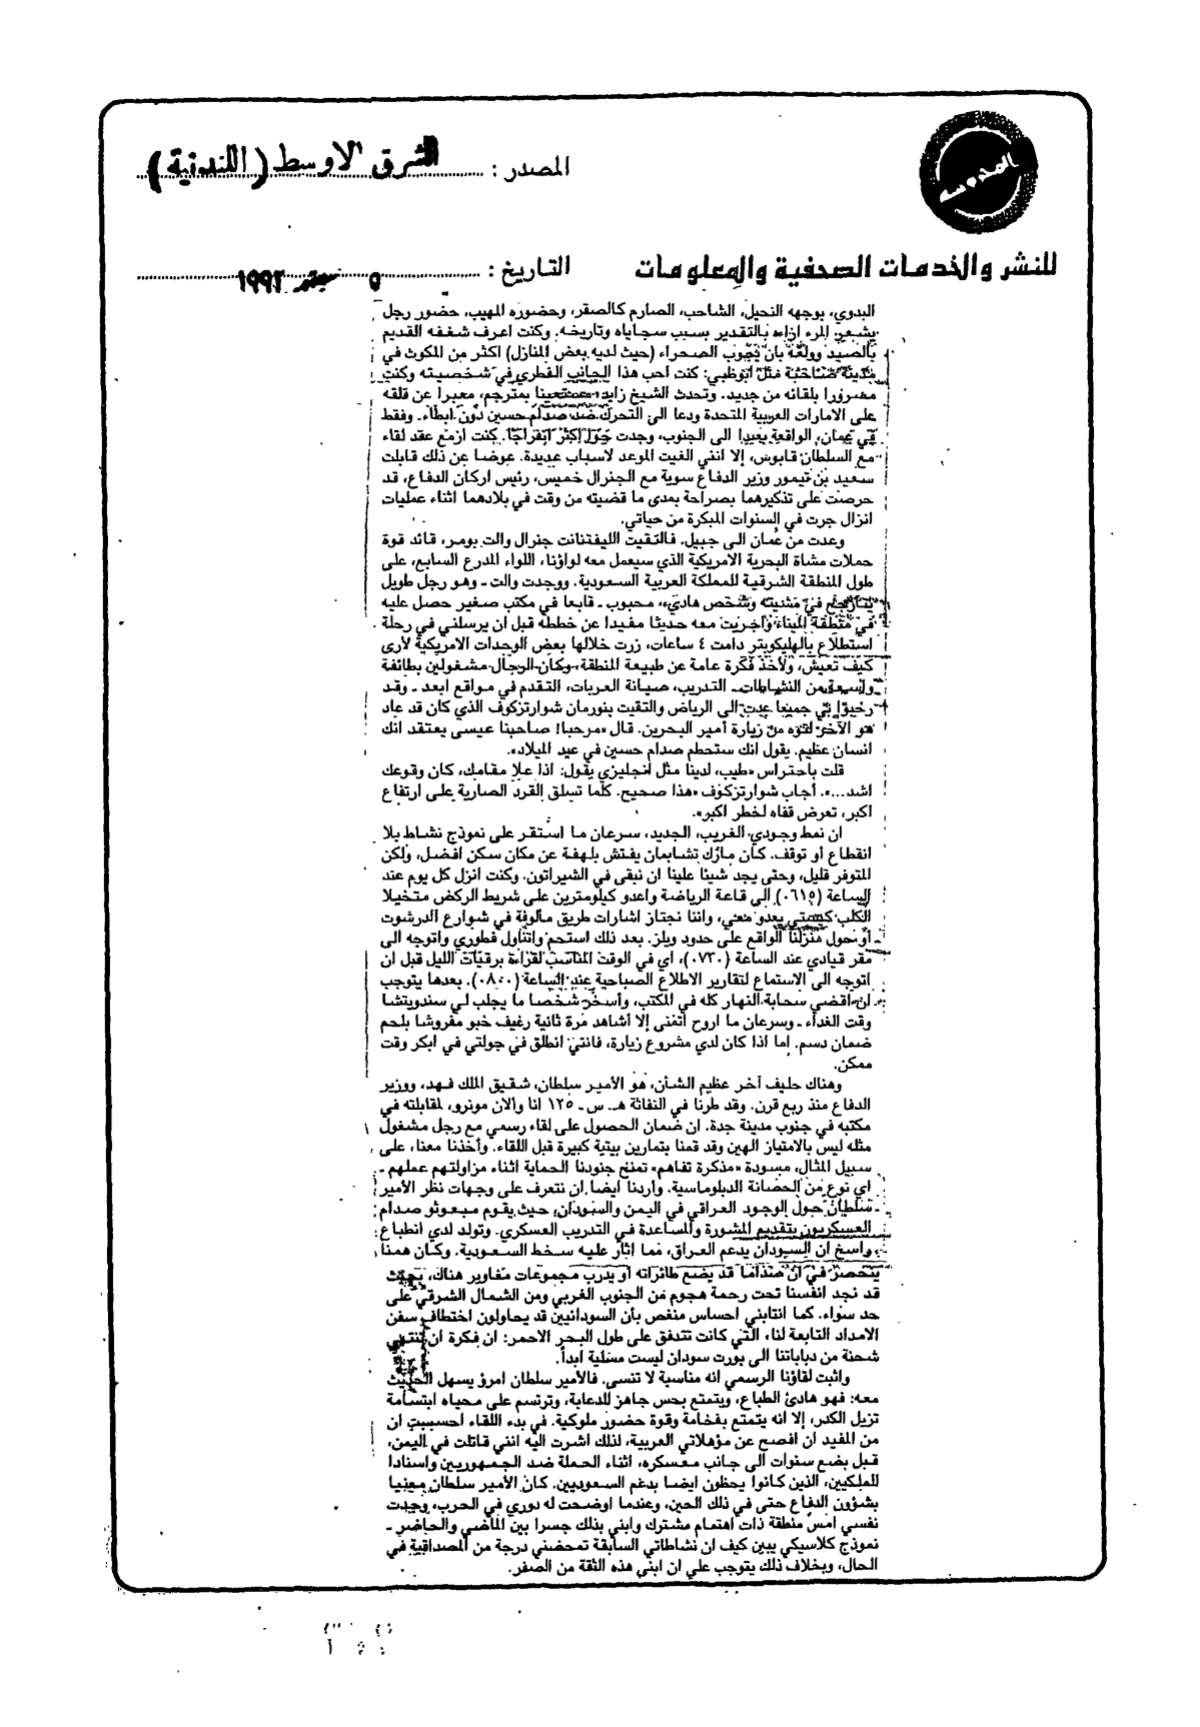 المصدر : الشرق الاوسط (اللندنية)
المدوسه
للنشر والخدمات الصحفية والمعلومات
التاريخ : ٥ سبتمبر ١٩٩٢
البدوي، بوجهه النحيل، الشاحب، الصارم كالصقر، وحضوره المهيب، حضور رجل
يشعر المرء ازاءه بالتقدير بسبب سجاياه وتاريخه. وكنت اعرف شغفه القديم
بالصيد وولعه بان يجوب الصحراء (حيث لديه بعض المنازل) اكثر من المكوث في
مدينة صاخبة مثل ابوظبي: كنت احب هذا الجانب الفطري في شخصيته وكنت
مسرورا بلقائه من جديد. وتحدث الشيخ زايد، مستعينا بمترجم، معبرا عن قلقه
على الامارات العربية المتحدة ودعا الى التحرك ضد صدام حسين دون ابطاء. وفقط
في عمان، الواقعة بعيدا الى الجنوب، وجدت جوا اكثر انفراجا. كنت ازمع عقد لقاء
مع السلطان قابوس، إلا انني الغيت الموعد لاسباب عديدة. عوضا عن ذلك قابلت
سعيد بن تيمور وزير الدفاع سوية مع الجنرال خميس، رئيس اركان الدفاع، قد
حرصت على تذكيرهما بصراحة بمدى ما قضيته من وقت في بلادهما اثناء عمليات
انزال جرت في السنوات المبكرة من حياتي.
وعدت من عُمان الى جبيل. فالتقيت الليفتنانت جنرال والت بومر، قائد قوة
حملات مشاة البحرية الامريكية الذي سيعمل معه لواؤنا، اللواء المدرع السابع، على
طول المنطقة الشرقية للمملكة العربية السعودية. ووجدت والت - وهو رجل طويل
يتأرجح في مشيته وشخص هادئ، محبوب - قابعا في مكتب صغير حصل عليه
في منطقة الميناء واجريت معه حديثا مفيدا عن خططه قبل ان يرسلني في رحلة
استطلاع بالهليكوبتر دامت ٤ ساعات، زرت خلالها بعض الوحدات الامريكية لأرى
كيف تعيش، ولأخذ فكرة عامة عن طبيعة المنطقة، وكان الرجال مشغولين بطائفة
واسعة من النشاطات - التدريب، صيانة العربات، التقدم في مواقع ابعد - وقد
رحبوا بي جميعا. عدت الى الرياض والتقيت بنورمان شوارتزكوف الذي كان قد عاد
هو الآخر لتوه من زيارة أمير البحرين. قال «مرحبا! صاحبنا عيسى يعتقد انك
انسان عظيم. يقول انك ستحطم صدام حسين في عيد الميلاد».
قلت باحتراس «طيب، لدينا مثل انجليزي يقول: اذا علا مقامك، كان وقوعك
اشد...». أجاب شوارتزكوف «هذا صحيح. كلما تسلق القرد الصارية على ارتفاع
اكبر، تعرض قفاه لخطر اكبر».
ان نمط وجودي الغريب، الجديد، سرعان ما استقر على نموذج نشاط بلا
انقطاع أو توقف. كان مارك تشابمان يفتش بلهفة عن مكان سكن افضل، ولكن
المتوفر قليل، وحتى يجد شيئا علينا ان نبقى في الشيراتون. وكنت انزل كل يوم عند
الساعة (٠٦١٥) الى قاعة الرياضة واعدو كيلومترين على شريط الركض متخيلا
الكلب كيستي يعدو معي، واننا نجتاز اشارات طريق مألوفة في شوارع الدرشوت
أو حول منزلنا الواقع على حدود ويلز. بعد ذلك استحم واتناول فطوري واتوجه الى
مقر قيادي عند الساعة (٠٧٣٠)، اي في الوقت المناسب لقراءة برقيات الليل قبل ان
اتوجه الى الاستماع لتقارير الاطلاع الصباحية عند الساعة (٠٨٠٠). بعدها يتوجب
ان اقضي سحابة النهار كله في المكتب، وأسخر شخصا ما يجلب لي سندويتشا
وقت الغداء - وسرعان ما اروح اتمنى إلا اشاهد مرة ثانية رغيف خبو مفروشا بلحم
ضمان دسم. إما اذا كان لدي مشروع زيارة، فانني انطلق في جولتي في ابكر وقت
ممكن.
وهناك حليف آخر عظيم الشأن، هو الأمير سلطان، شقيق الملك فهد، ووزير
الدفاع منذ ربع قرن. وقد طرنا في النفاثة هـ. س - ١٢٥ انا والان مونرو، لمقابلته في
مكتبه في جنوب مدينة جدة. ان ضمان الحصول على لقاء رسمي مع رجل مشغول
مثله ليس بالامتياز الهين وقد قمنا بتمارين بيتية كبيرة قبل اللقاء. وأخذنا معنا، على
سبيل المثال، مسودة «مذكرة تفاهم» تمنح جنودنا الحماية اثناء مزاولتهم عملهم -
اي نوع من الحصانة الدبلوماسية. واردنا ايضا ان نتعرف على وجهات نظر الأمير
سلطان حول الوجود العراقي في اليمن والسودان، حيث يقوم مبعوثو صدام
العسكريون بتقديم المشورة والمساعدة في التدريب العسكري. وتولد لدي انطباع
راسخ ان السودان يدعم العراق، مما اثار عليه سخط السعودية. وكان همنا
ينحصر في ان صداما قد يضع طائراته أو يدرب مجموعات مغاوير هناك، بحيث
قد نجد انفسنا تحت رحمة هجوم من الجنوب الغربي ومن الشمال الشرقي على
حد سواء. كما انتابني احساس منغص بأن السودانيين قد يحاولون اختطاف سفن
الامداد التابعة لنا، التي كانت تتدفق على طول البحر الاحمر: ان فكرة ان تنتهي
شحنة من دباباتنا الى بورت سودان ليست مسلية ابداً.
واثبت لقاؤنا الرسمي انه مناسبة لا تنسى. فالأمير سلطان امرؤ يسهل الحديث
معه: فهو هادئ الطباع، ويتمتع بحس جاهز للدعابة، وترتسم على محياه ابتسامة
تزيل الكدر، إلا انه يتمتع بفخامة وقوة حضور ملوكية. في بدء اللقاء احسست ان
من المفيد ان افصح عن مؤهلاتي العربية، لذلك اشرت اليه انني قاتلت في اليمن،
قبل بضع سنوات الى جانب معسكره، اثناء الحملة ضد الجمهوريين واسنادا
للملكيين، الذين كانوا يحظون ايضا بدعم السعوديين. كان الأمير سلطان معنيا
بشؤون الدفاع حتى في ذلك الحين، وعندما اوضحت له دوري في الحرب، وجدت
نفسي امسّ منطقة ذات اهتمام مشترك وابني بذلك جسرا بين الماضي والحاضر -
نموذج كلاسيكي يبين كيف ان نشاطاتي السابقة تمحضني درجة من المصداقية في
الحال، وبخلاف ذلك يتوجب علي ان ابني هذه الثقة من الصفر.